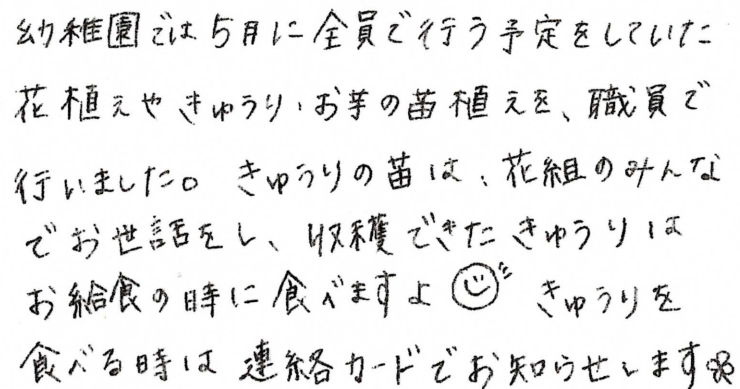 幼稚園では5月に全員で行う予定をしていた
花植えやきゅうり・お芋の苗植えを、職員で
行いました。 きゅうりの苗は、花組のみんな
でお世話をし、収穫できたきゅうりは
お給食の時に食べますよ きゅうりを
食べる時は 連絡カードでお知らせします